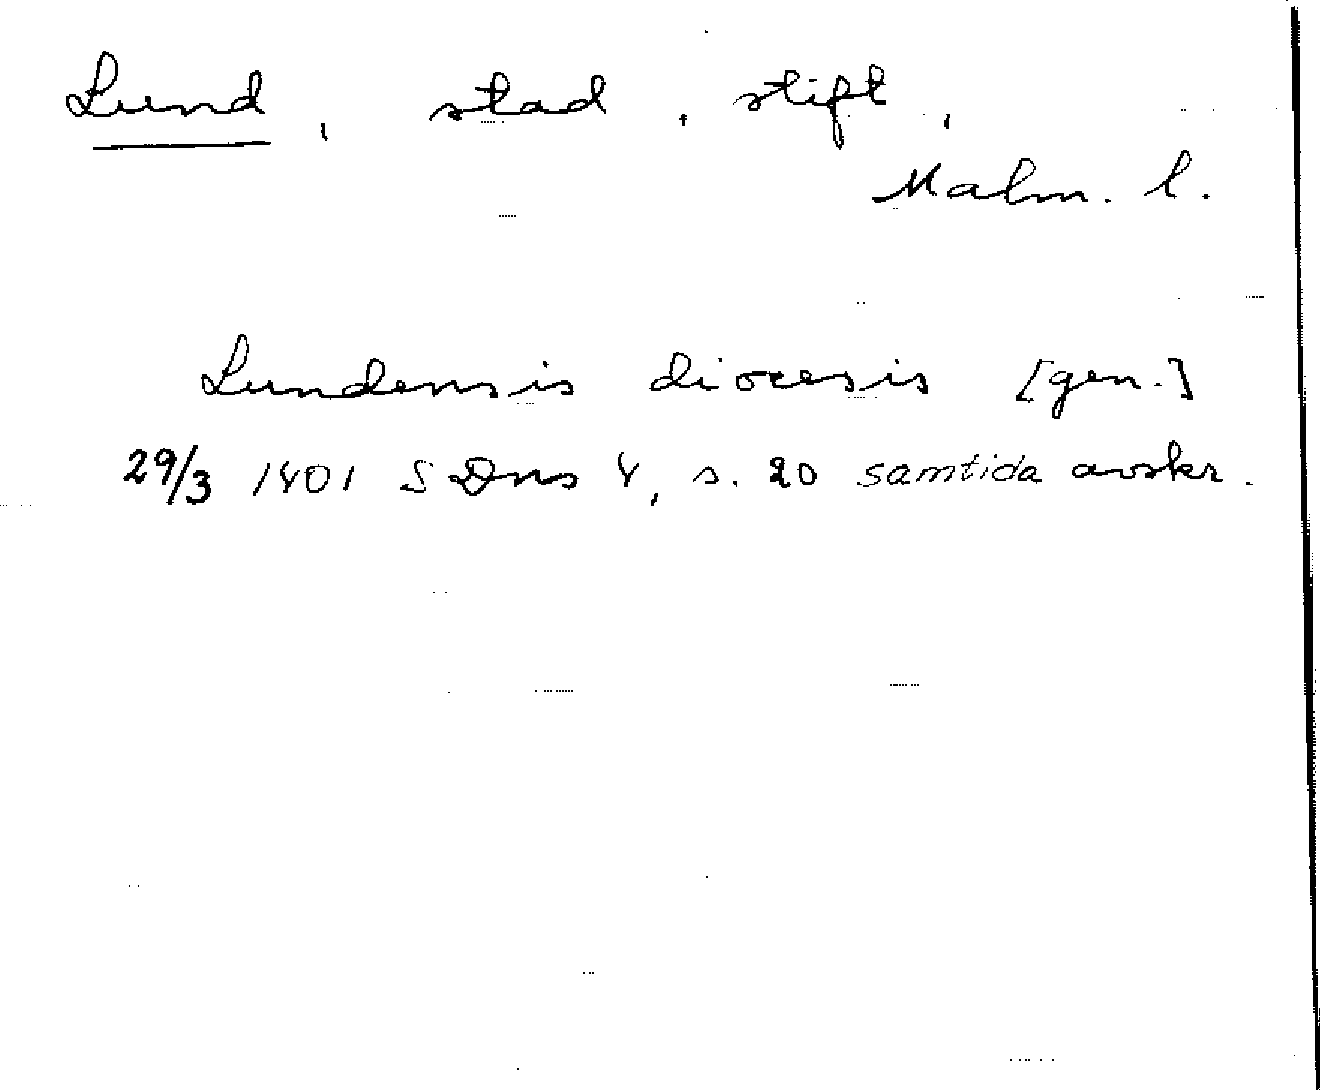 Lund, stad, stift,
Malm. l.
Lundensis diocesis [gen.]
29/3 1401 SDns 4, s. 20 samtida avskr.